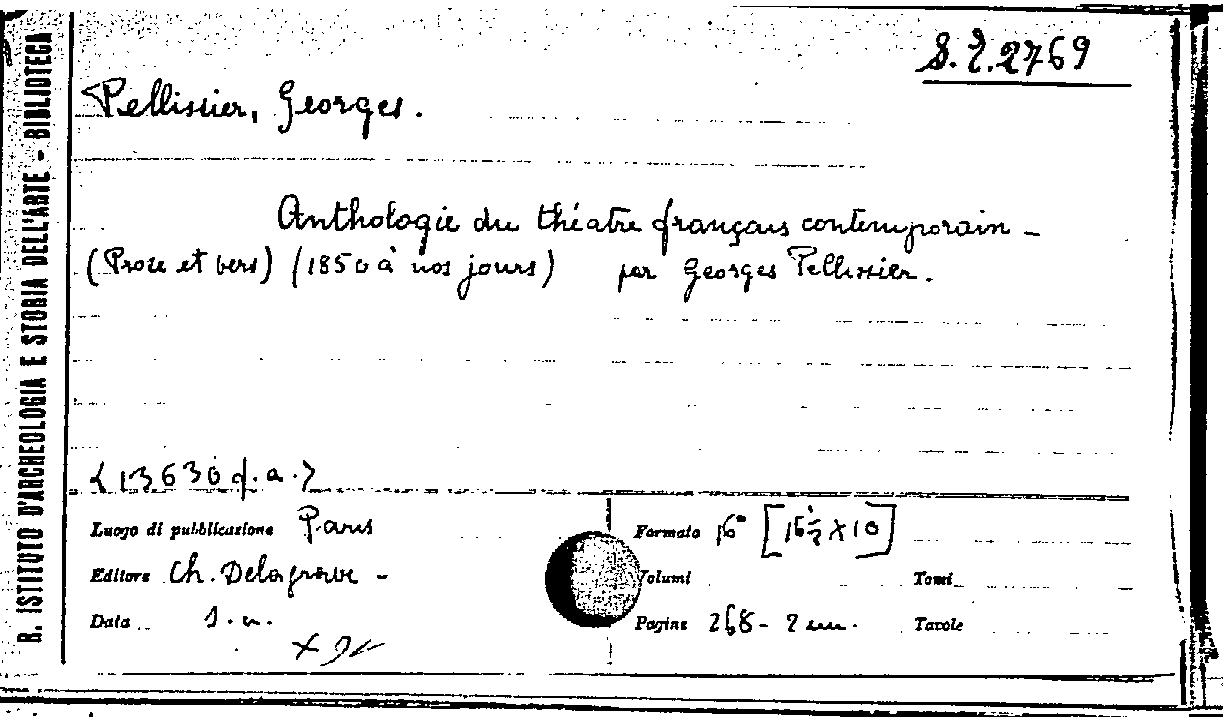 R. ISTITUTO D'ARCHEOLOGIA E STORIA DELL'ARTE - BIBLIOTECA
Pellissier, Georges.
Anthologie du théatre français contemporain -
(Prose et vers) (1850 à nos jours) par Georges Pellissier.
Luogo di pubblicazione Paris
Formato 16° [16½ x 10]
Editore Ch. Delagrave -
Volumi
Tomi
Data
Pagine
Tavole